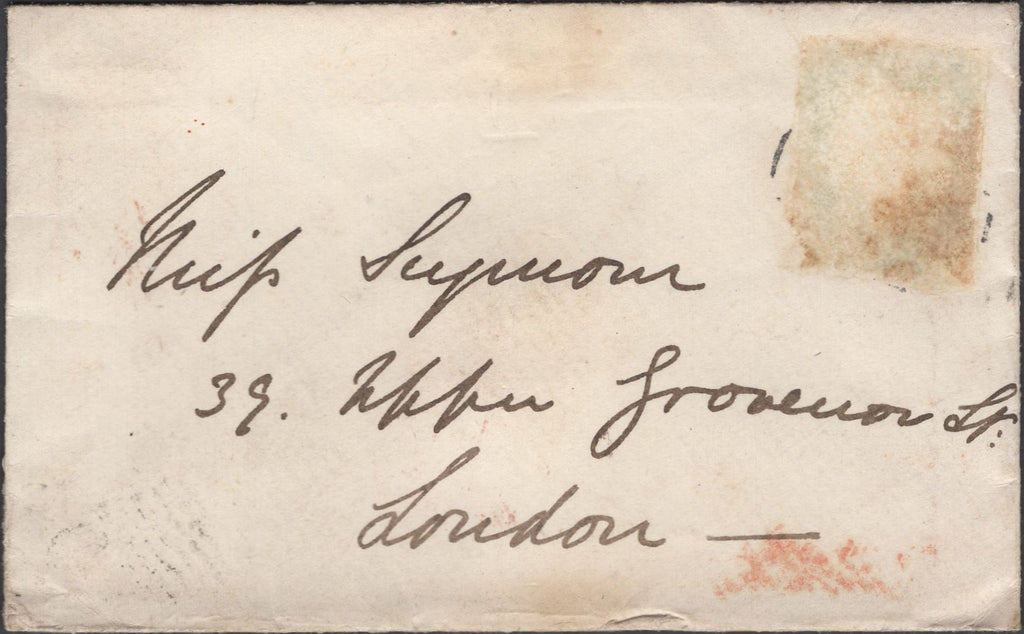 Miss Seymour
39. Upper Grovenor St.
London —